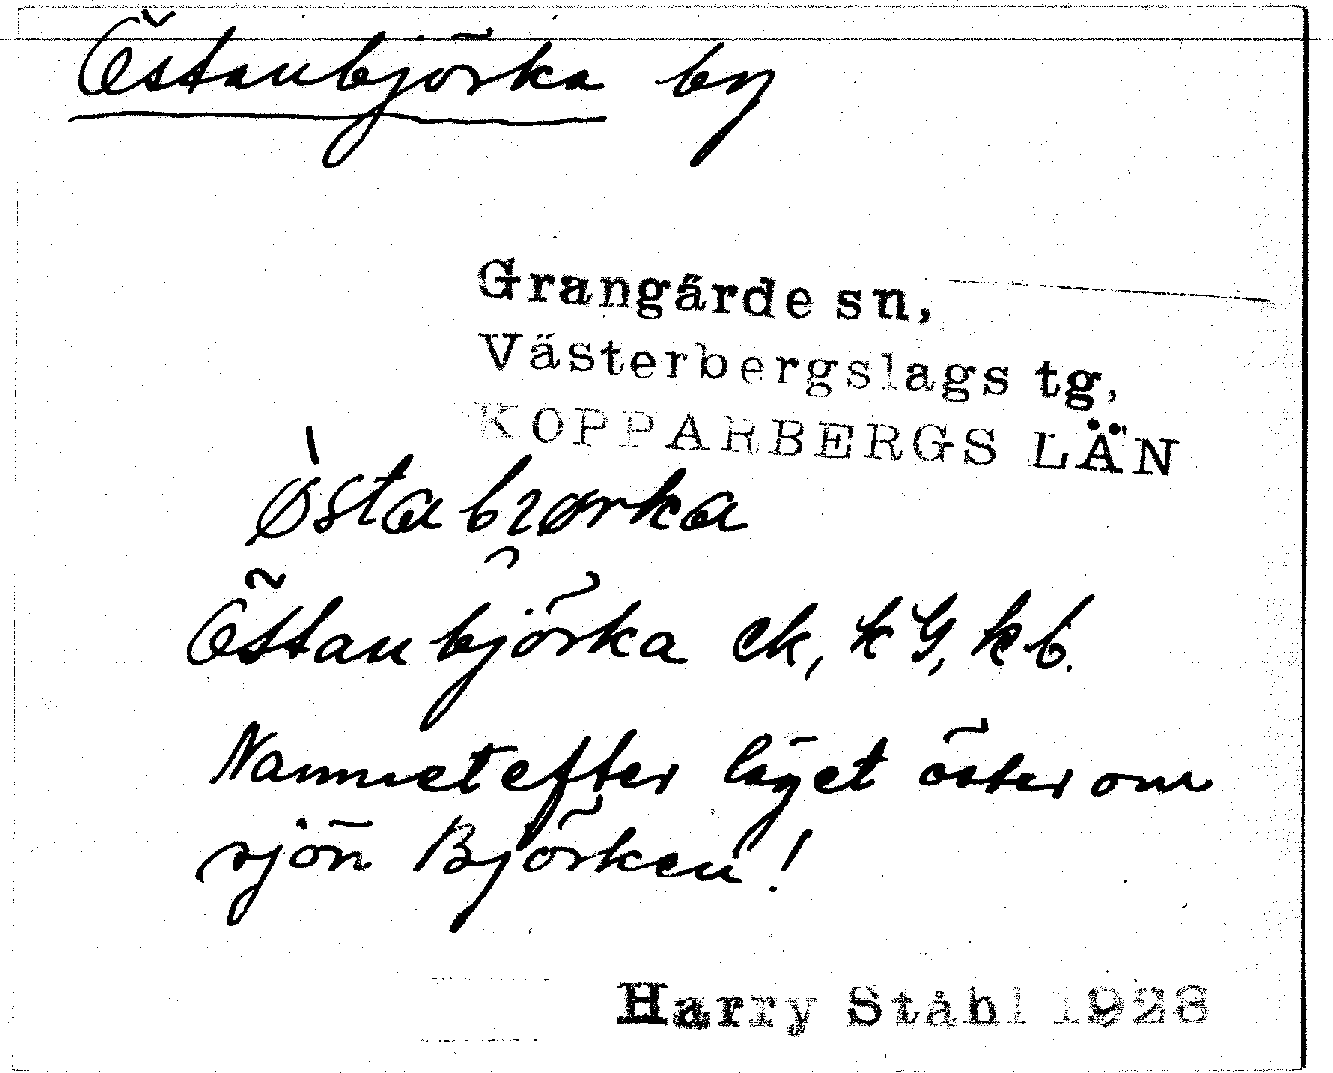 Östanbjörka by
Grangärde sn,
Västerbergslags tg,
KOPPARBERGS LÄN
Östanbjörka ek, kG, kb.
Namnet efter läget öster om
sjön Björken!
Harry Ståhl 1928